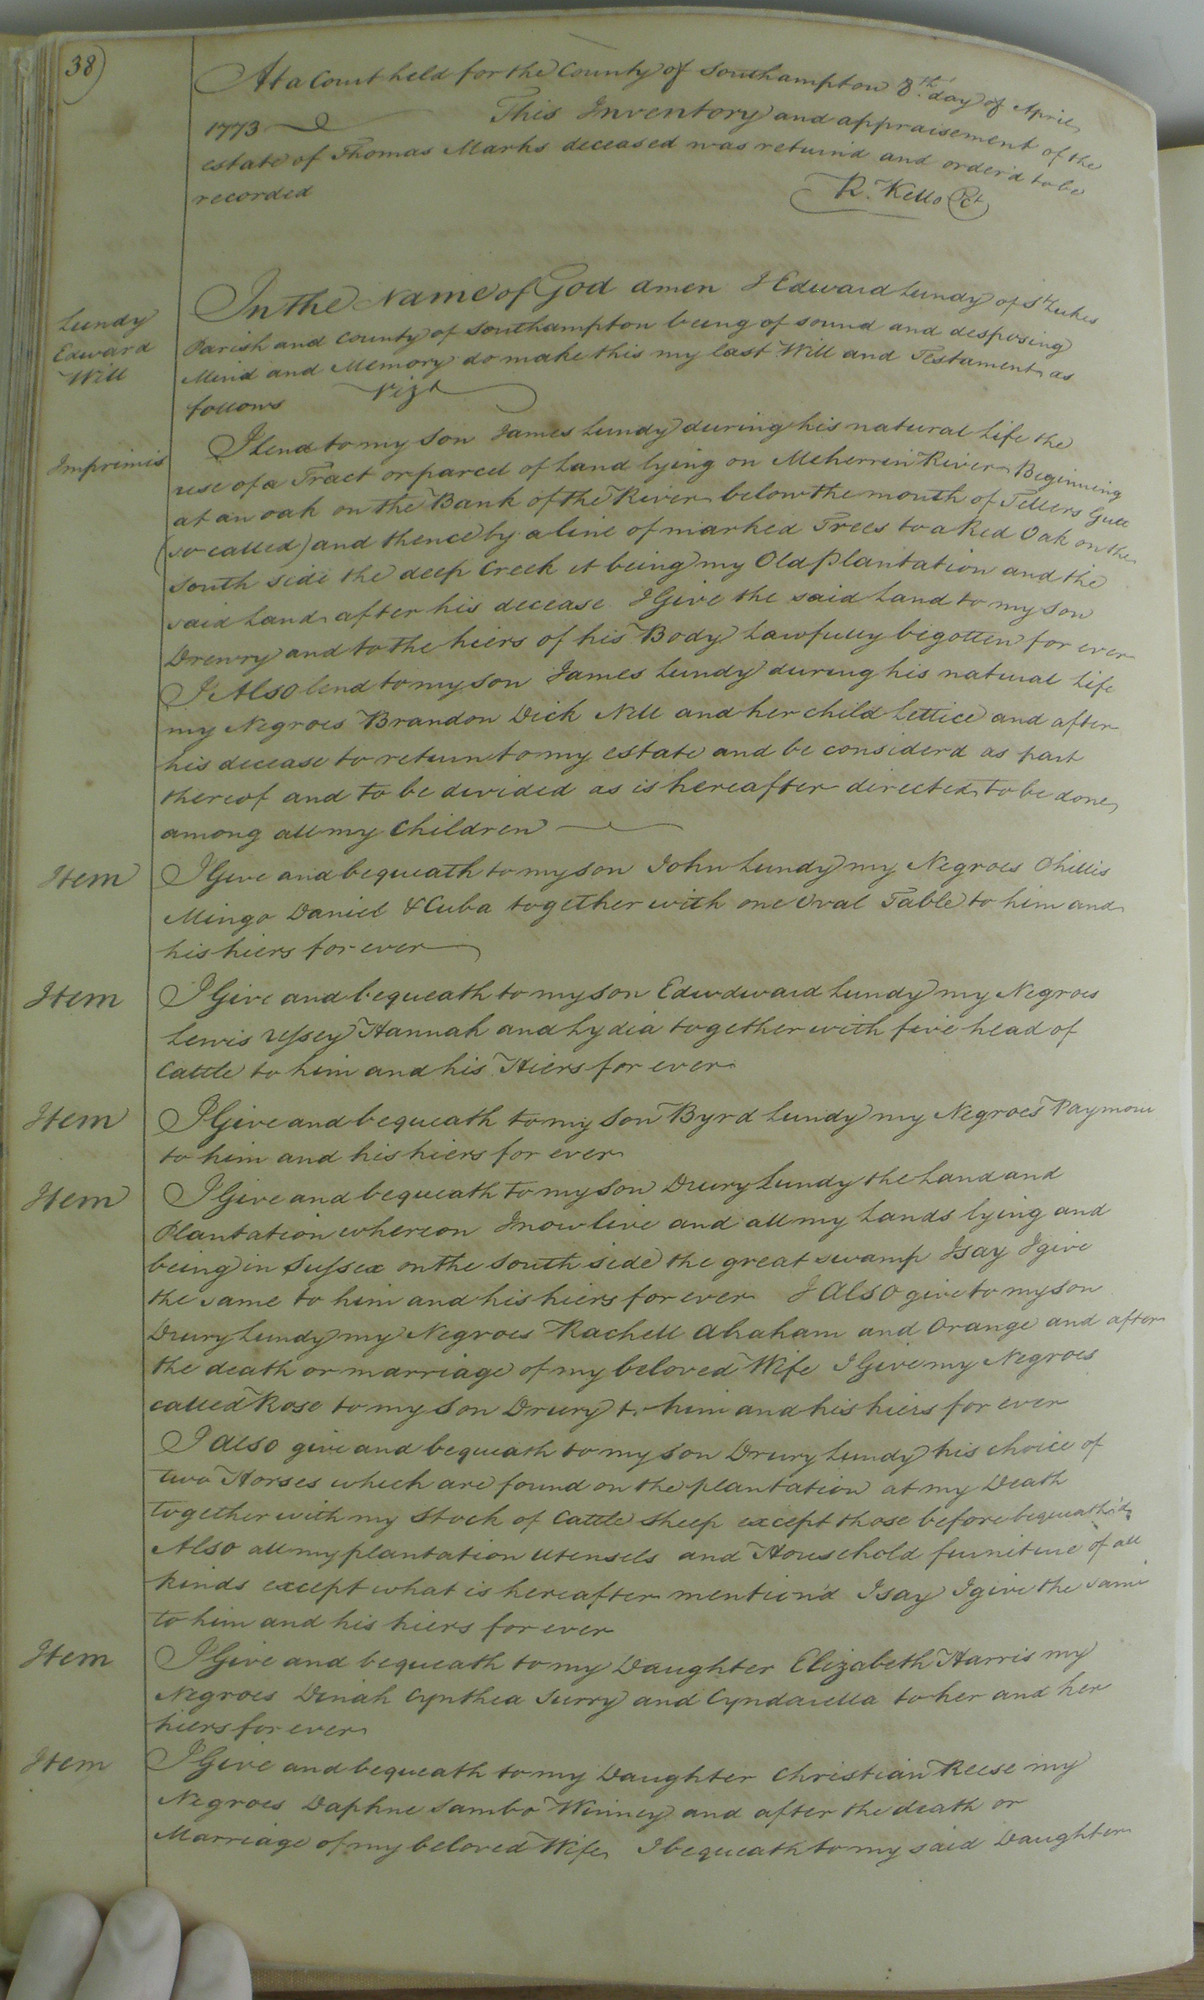 38)
At a Court held for the County of Southampton 8th. day of April
1773 This Inventory and appraisement of the
estate of Thomas Marks deceased was return'd and order'd to be
recorded
R. Kello Ct
Lundy
Edward
Will
In the Name of God amen I Edward Lundy of St Lukes
Parish and County of Southampton being of sound and desposing
Mind and Memory do make this my last Will and Testament as
follows Vizt
Imprimis I lend to my Son James Lundy during his natural Life the
use of a Tract or parcel of Land lying on Meherrin River Beginning
at an oak on the Bank of the River below the mouth of Tellers Gutt
(so called) and thence by a line of marked Trees to a Red Oak on the
South side the deep Creek it being my Old Plantation and the
said Land after his decease I Give the said Land to my Son
Drewry and to the hiers of his Body Lawfully begotten for ever
I Also lend to my son James Lundy during his natural Life
my Negroes Brandon Dick Nell and her child Lettice and after
his decease to return to my estate and be considerd as part
thereof and to be devided as is hereafter directed to be done
among all my Children
Item I Give and bequeath to my son John Lundy my Negroes Phillis
Mingo Daniel & Cuba together with one Oval Table to him and
his hiers for ever
Item I Give and bequeath to my son Edwdward Lundy my Negroes
Lewis Ussey Hannah and Lydia together with five head of
Cattle to him and his Hiers for ever
Item I Give and bequeath to my Son Byrd Lundy my Negroes
to him and his hiers for ever
Item I Give and bequeath to my son Drury Lundy the Land and
Plantation whereon I now live and all my Lands lying and
being in Sussex on the South side the great swamp I say I give
the same to him and his hiers for ever I Also give to my son
Drury Lundy my Negroes Rachell Abraham and Orange and after
the death or marriage of my beloved Wife I Give my Negroes
called Rose to my Son Drury to him and his hiers for ever
I also give and bequeath to my son Drury Lundy his choice of
two Horses which are found on the plantation at my Death
together with my Stock of Cattle Sheep except those before bequeath'd
Also all my plantation utensels and Household furniture of all
kinds except what is hereafter mention'd I say I give the same
to him and his hiers for ever
Item I Give and bequeath to my Daughter Elizabeth Harris my
Negroes Dinah Cynthea Surry and Cyndarella to her and her
hiers for ever
Item I Give and bequeath to my Daughter Christian Reese my
Negroes Daphne Sambo Winney and after the death or
Marriage of my beloved Wife I bequeath to my said Daughter